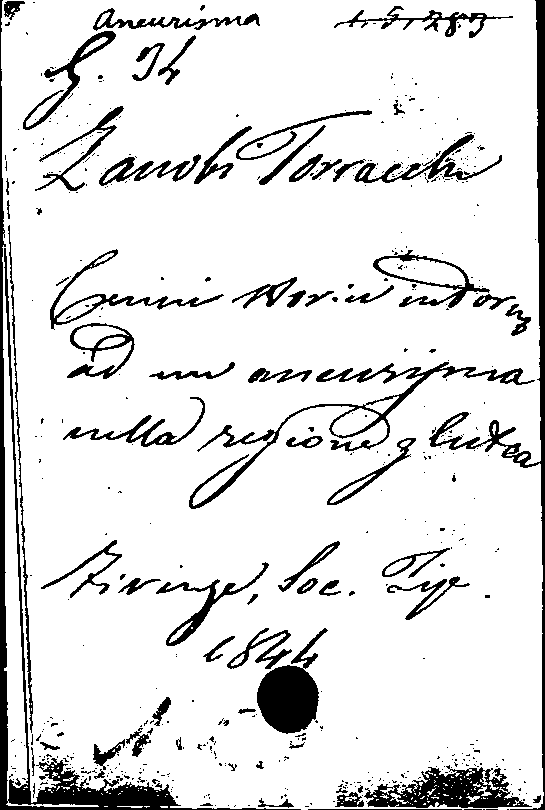 Aneurisma 1.5.283
G. 34
Zanobi Torracchi
Cenni storici intorno
ad un aneurisma
nella regione glutea
Firenze, Soc. Tip.
1844